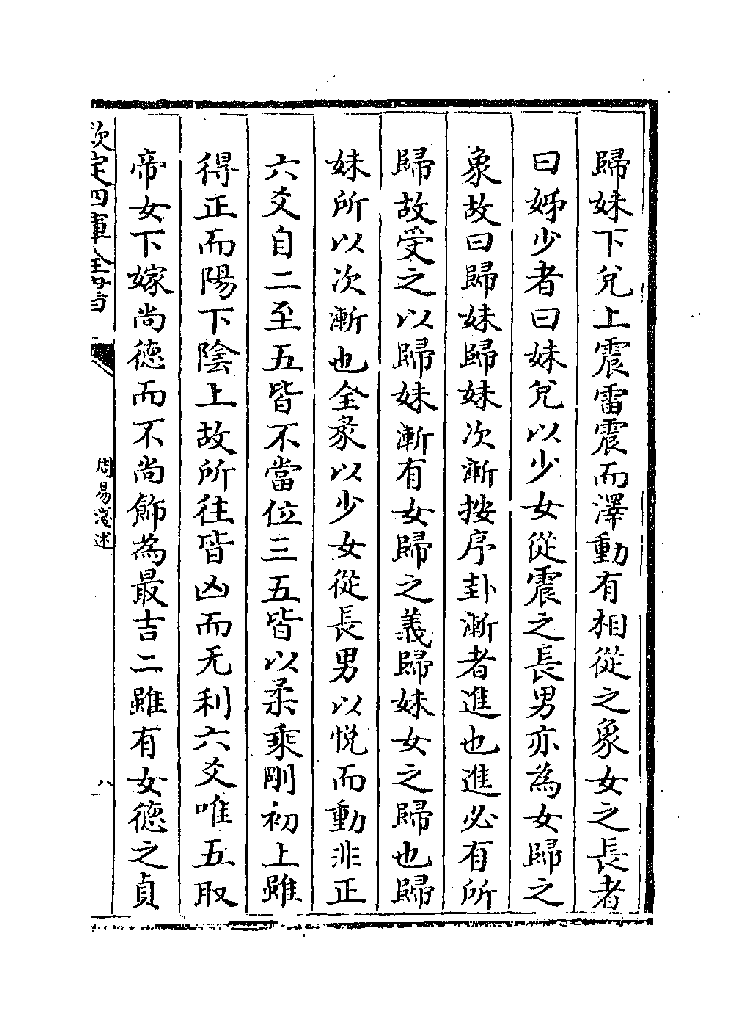 歸妹下兌上震雷震而澤動有相從之象女之長者
曰姊少者曰妹兌以少女從震之長男亦為女歸之
象故曰歸妹歸妹次漸按序卦漸者進也進必有所
歸故受之以歸妹漸有女歸之義歸妹女之歸也歸
妹所以次漸也全彖以少女從長男以悅而動非正
六爻自二至五皆不當位三五皆以柔乘剛初上雖
得正而陽下陰上故所往皆凶而无利六爻唯五取
帝女下嫁尚德而不尚飾為最吉二雖有女德之貞
欽定四庫全書
周易淺述
八